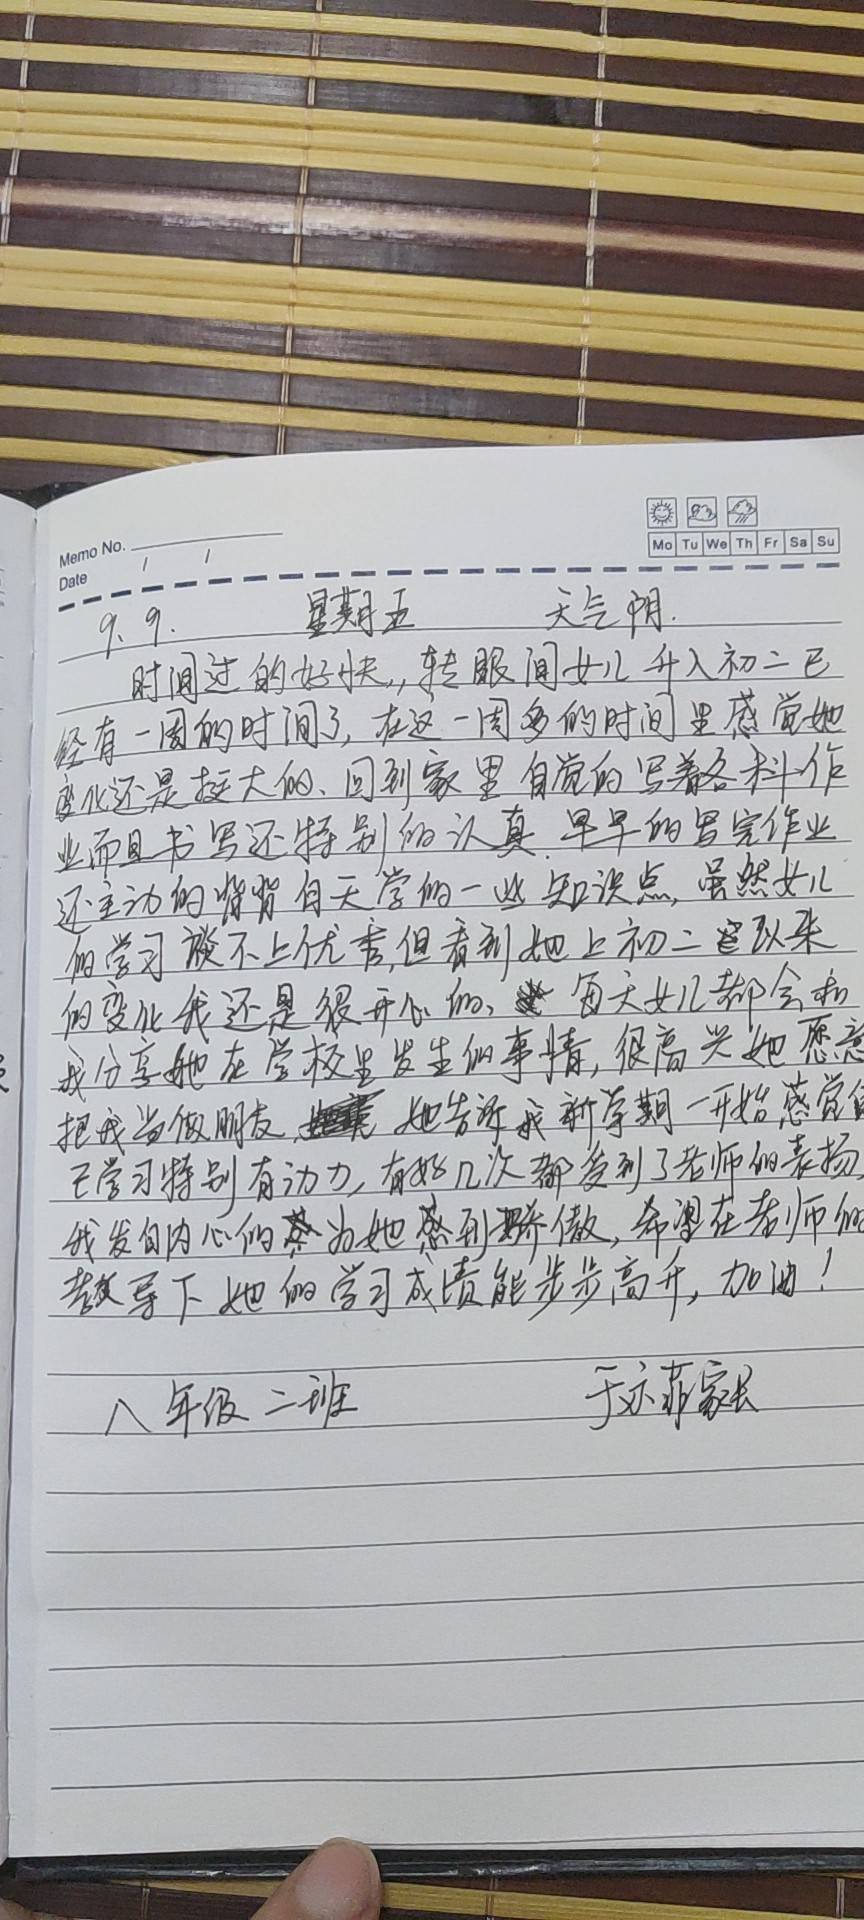 Memo No.
Date / /
Mo Tu We Th Fr Sa Su
9.9. 星期五 天气阴.
时间过的好快,,转眼间女儿升入初二已
经有一周的时间了,在这一周多的时间里感觉她
变化还是挺大的、回到家里自觉的写着各科作
业而且书写还特别的认真.早早的写完作业
还主动的背背白天学的一些知识点,虽然女儿
的学习谈不上优秀,但看到她上初二以来
的变化我还是很开心的、每天女儿都会和
我分享她在学校里发生的事情,很高兴她愿意
把我当做朋友,她告诉我新学期一开始感觉自
己学习特别有动力,有好几次都受到了老师的表扬,
我发自内心的为她感到骄傲,希望在老师的
教导下她的学习成绩能步步高升,加油!
八年级二班 于亦菲家长